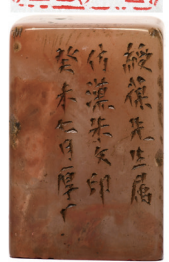 緩葆先生屬
仿漢朱文印
癸未二月厚士